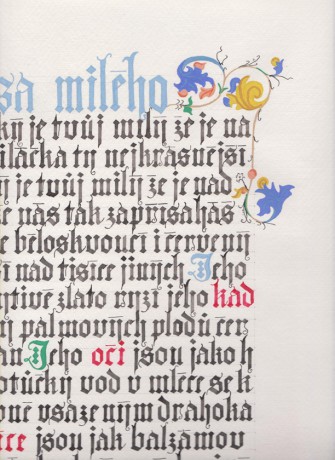 sa milého
ký je tvůj milý že je na
iláčka ty nejkrásnejší
ý je tvůj milý že je nad
e nás tak zapřísaháš
e běloskvoucí i červený
í nad tisíce jiných Jeho
ytivé zlato ryzí jeho kad
y palmových plodů čer
an Jeho oči jsou jako h
otůčky vod v mléce se k
bné vsazeným drahoka
íce jsou jak balzámov